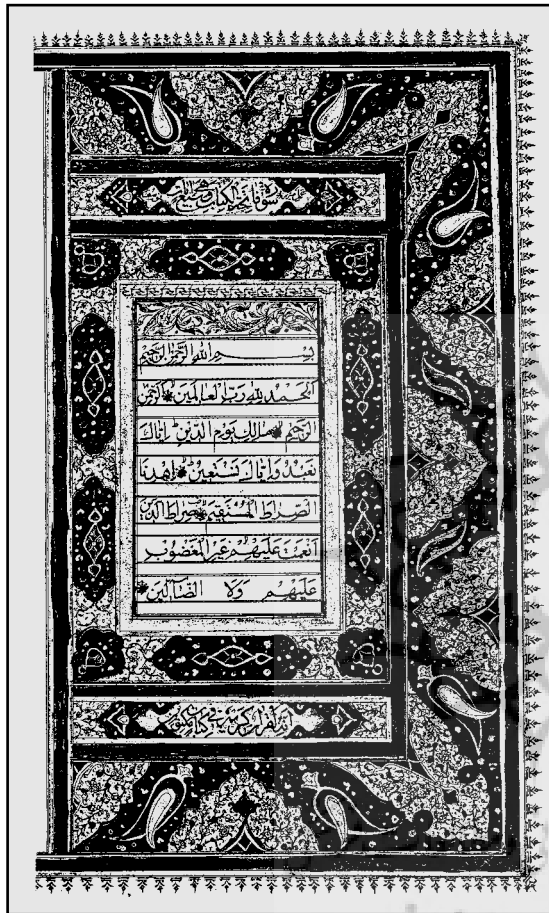 سورة فاتحة الكتاب
بسم الله الرحمن الرحيم
الحمد لله رب العالمين الرحمن
الرحيم مالك يوم الدين اياك
نعبد واياك نستعين اهدنا
الصراط المستقيم صراط الذين
انعمت عليهم غير المغضوب
عليهم ولا الضآلين
انه لقران كريم في كتاب مكنون